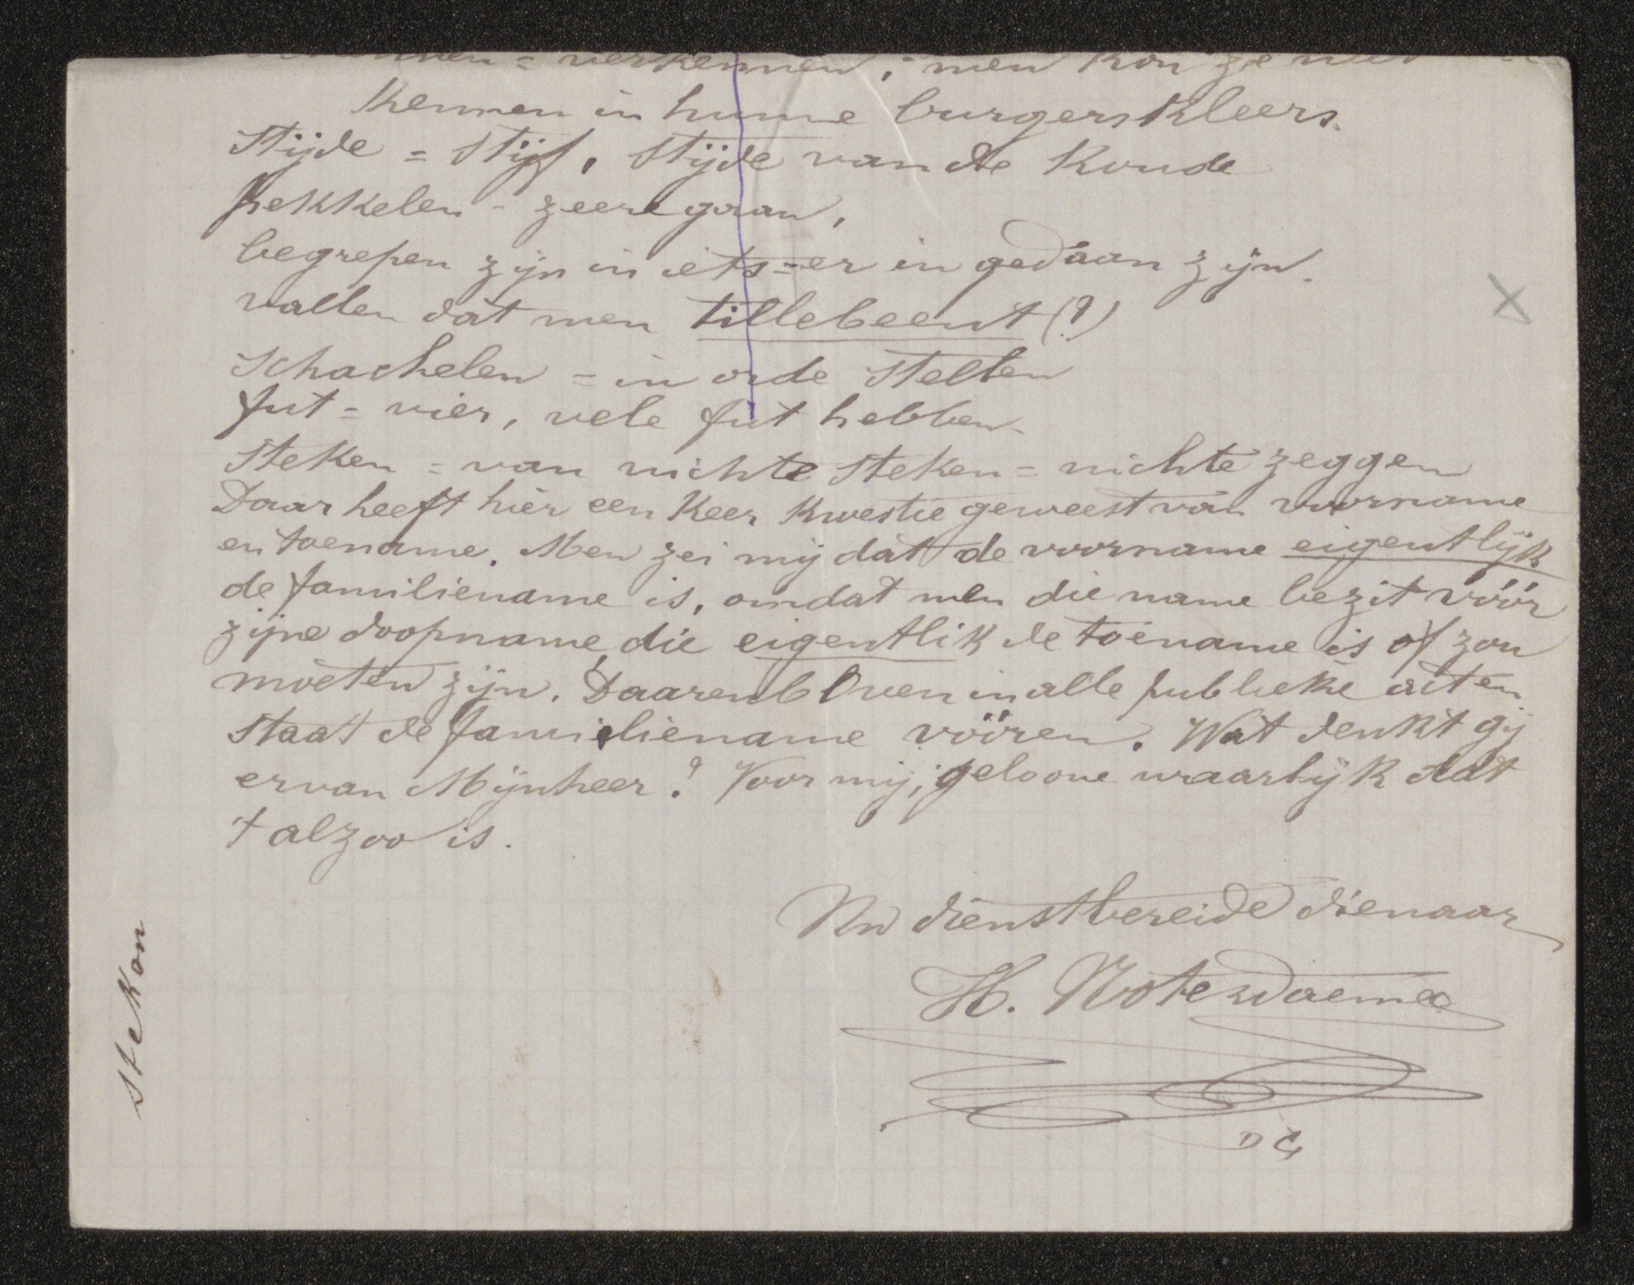 = verkennen, men kon ze niet
kennen in hunne burgerskleers.
Stijde = stijf, stijde van de koude
pekkelen - zeere gaan,
begrepen zijn in iets = er in gedaan zijn.
vallen dat men tillebeent (?)
schachelen = in orde stellen
fut = vier, vele fut hebben.
steken = van nichte steken = nichte zeggen
Daar heeft hier een keer kwestie geweest van voorname
en toename. Men zei mij dat de voorname eigentlijk
de familiename is, omdat men die name bezit vóór
zijne doopname, die eigentlik de toename is of zou
moeten zijn. Daarenboven in alle publieke acten
staat de familiename vóóren. Wat denkt gij
ervan Mijnheer? Voor mij, 'k geloove waarlijk dat
't alzoo is.
Uw dienstbereide dienaar
H. Noterdaeme
DG
steken